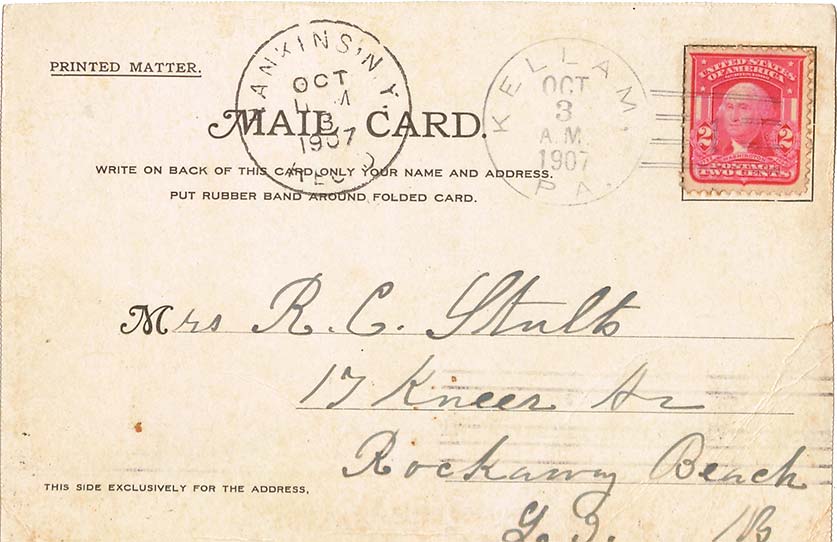 PRINTED MATTER.
HANKINS, N.Y.
OCT
3
1907
REC'D
KELLAM,
OCT
3
A.M.
1907
PA.
UNITED STATES
OF AMERICA
2 2
POSTAGE
TWO CENTS
MAIL CARD.
WRITE ON BACK OF THIS CARD ONLY YOUR NAME AND ADDRESS.
PUT RUBBER BAND AROUND FOLDED CARD.
Mrs R. C. Stults
17 Kneer Av
Rockaway Beach
THIS SIDE EXCLUSIVELY FOR THE ADDRESS,